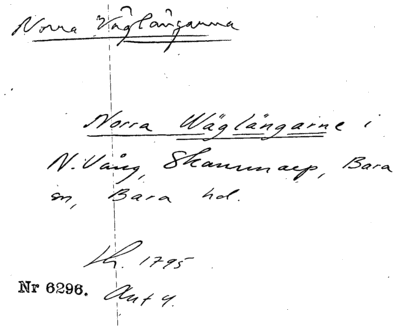 Norra Våglångarna
Norra Wåglångarne i
N. Vång, Skammarp, Bara
sn, Bara hd.
Lh. 1795
Nr 6296. Akt 4.